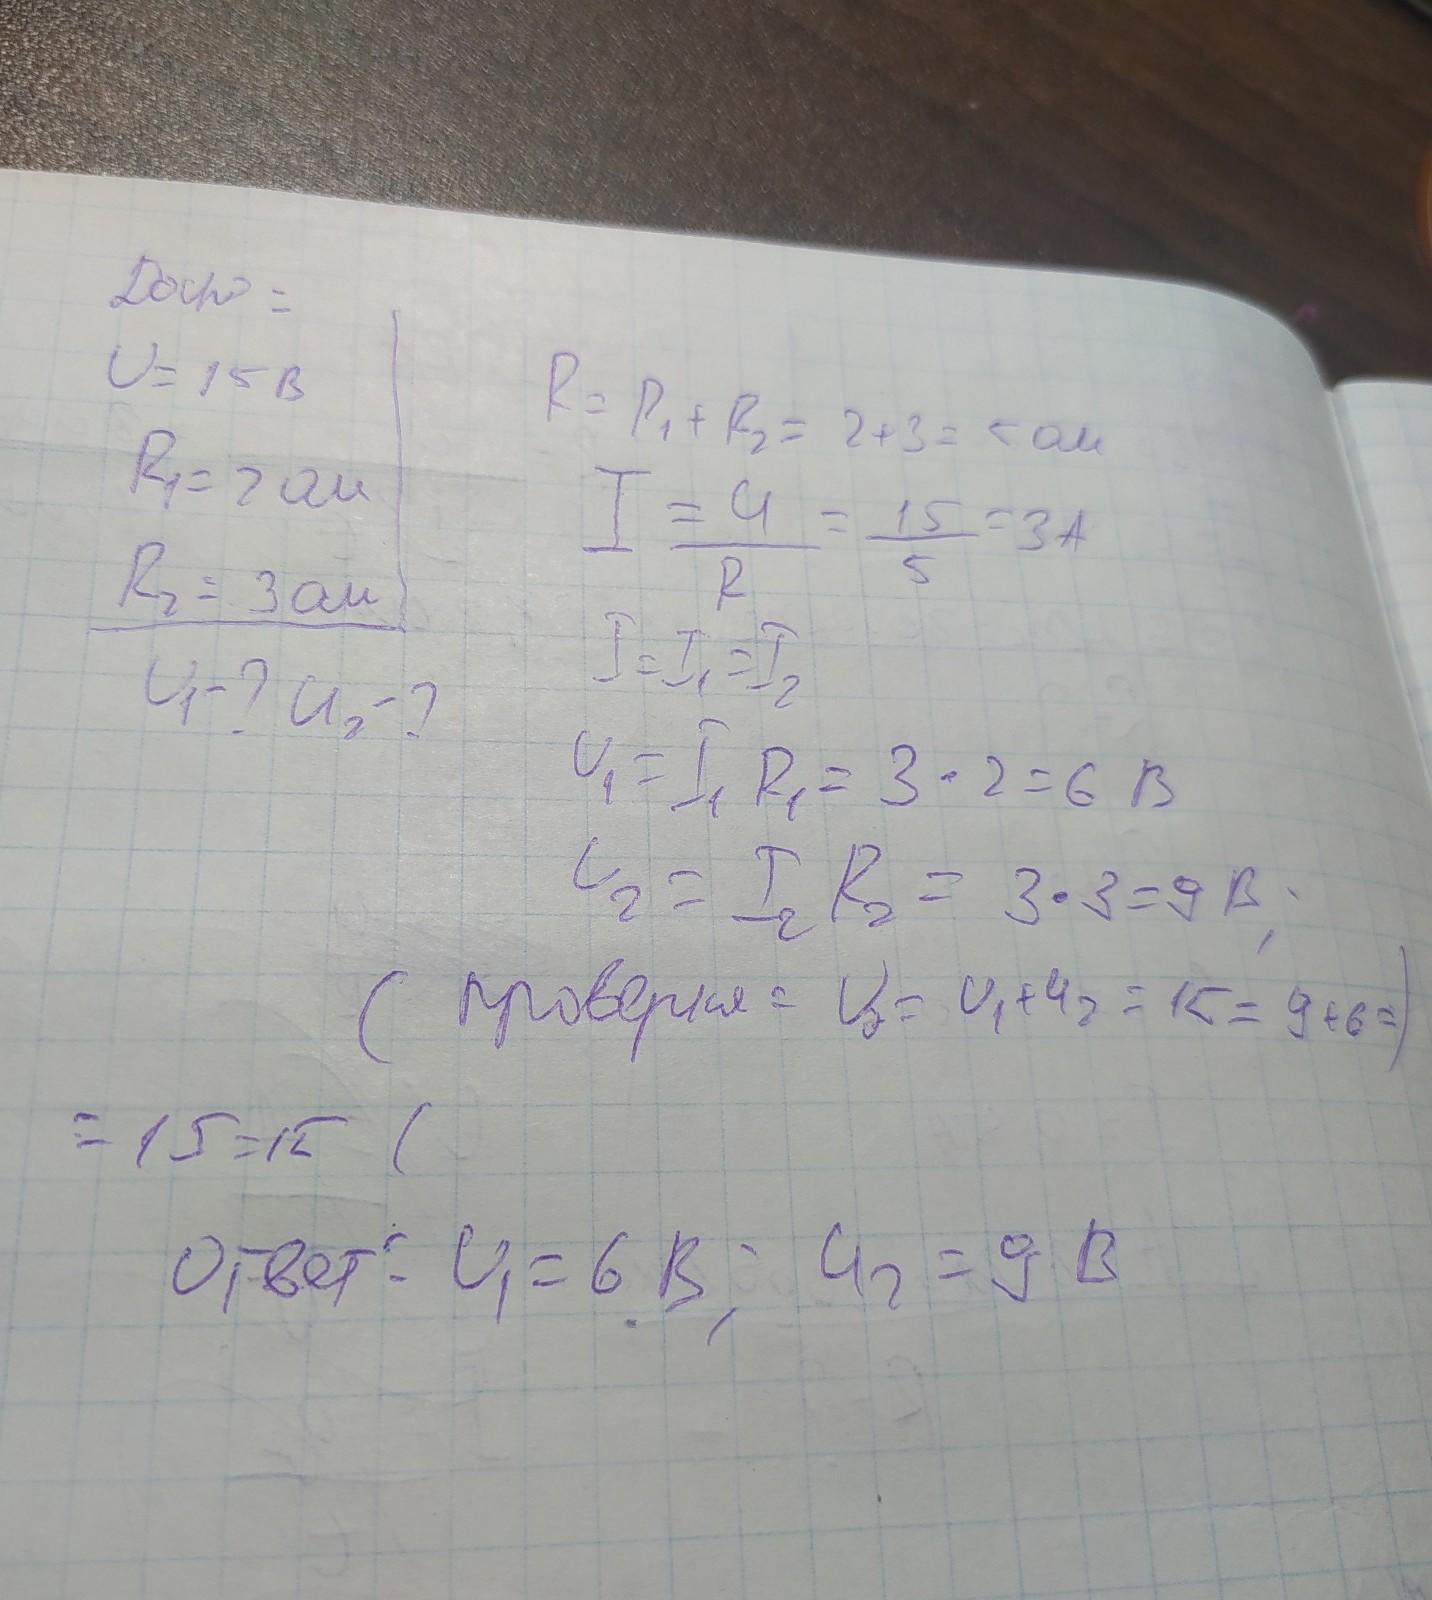 Дано =
U = 15 В
R₁ = 2 ом
R₂ = 3 ом
U₁ - ? U₂ - ?
R = R₁ + R₂ = 2 + 3 = 5 ом
I = U/R = 15/5 = 3 А
I = I₁ = I₂
U₁ = I₁ R₁ = 3 · 2 = 6 В
U₂ = I₂ R₂ = 3 · 3 = 9 В;
( проверка = U = U₁ + U₂ = 15 = 9 + 6 = )
= 15 = 15 (
Ответ: U₁ = 6 В; U₂ = 9 В